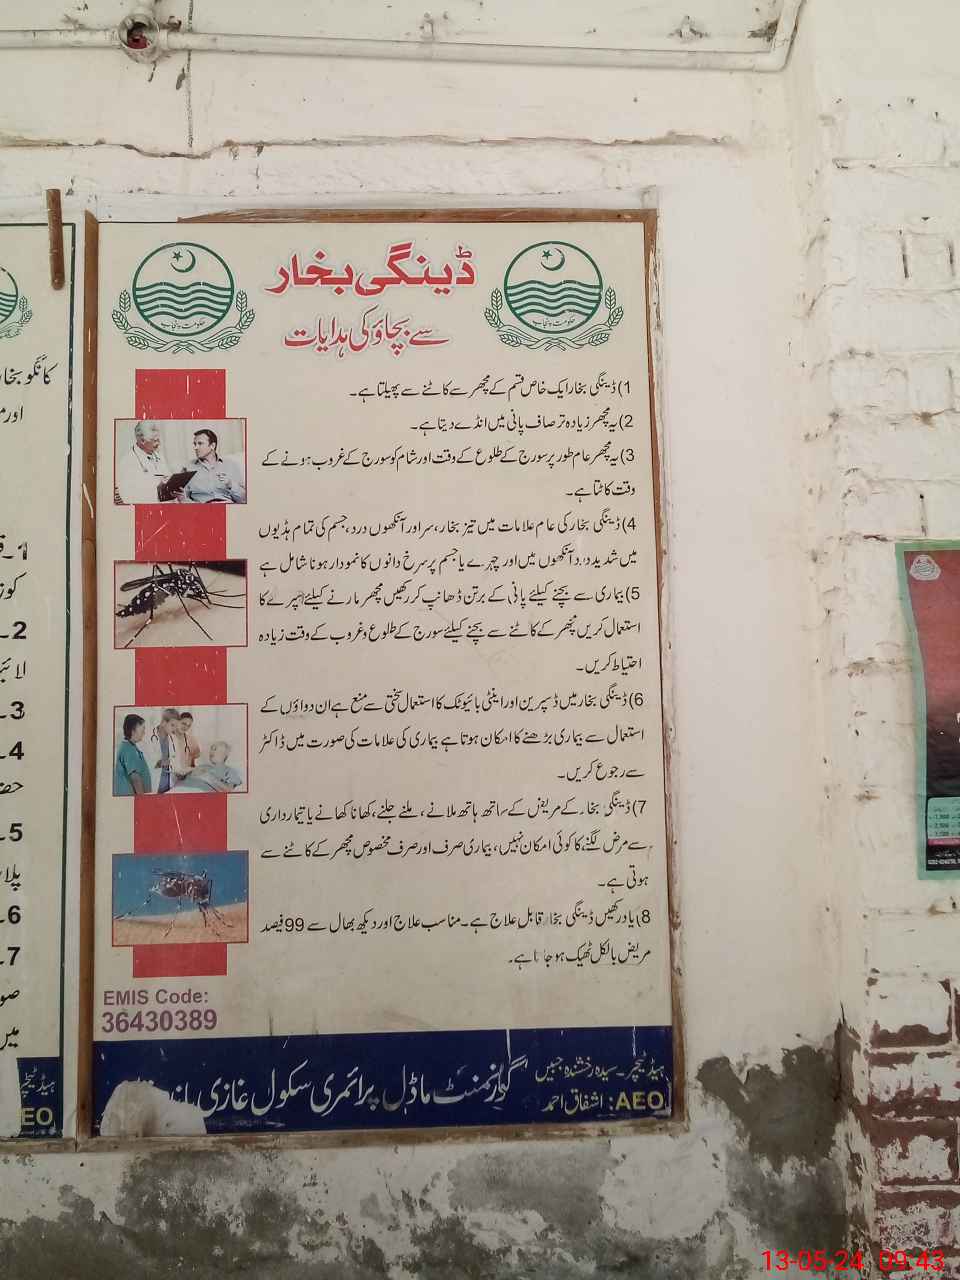 ڈینگی بخار
سے بچاؤ کی ہدایات
حکومت پنجاب
حکومت پنجاب
1) ڈینگی بخار ایک خاص قسم کے مچھر سے کاٹنے سے پھیلتا ہے۔
2) یہ مچھر زیادہ تر صاف پانی میں انڈے دیتا ہے۔
3) یہ مچھر عام طور پر سورج کے طلوع کے وقت اور شام کو سورج کے غروب ہونے کے
وقت کاٹتا ہے۔
4) ڈینگی بخار کی عام علامات میں تیز بخار، سر اور آنکھوں درد، جسم کی تمام ہڈیوں
میں شدید درد، آنکھوں میں اور چہرے یا جسم پر سرخ دانوں کا نمودار ہونا شامل ہے
5) بیماری سے بچنے کیلئے پانی کے برتن ڈھانپ کر رکھیں مچھر مارنے کیلئے اسپرے کا
استعمال کریں مچھر کے کاٹنے سے بچنے کیلئے سورج کے طلوع و غروب کے وقت زیادہ
احتیاط کریں۔
6) ڈینگی بخار میں ڈسپرین اور اینٹی بائیوٹک کا استعمال سختی سے منع ہے ان دواؤں کے
استعمال سے بیماری بڑھنے کا امکان ہوتا ہے بیماری کی علامات کی صورت میں ڈاکٹر
سے رجوع کریں۔
7) ڈینگی بخار کے مریض کے ساتھ ہاتھ ملانے، ملنے جلنے، کھانا کھانے یا تیمارداری
سے مرض لگنے کا کوئی امکان نہیں، بیماری صرف اور صرف مخصوص مچھر کے کاٹنے سے
ہوتی ہے۔
8) یاد رکھیں ڈینگی بخار قابل علاج ہے۔ مناسب علاج اور دیکھ بھال سے 99 فیصد
مریض بالکل ٹھیک ہو جاتا ہے۔
EMIS Code:
36430389
ہیڈ ٹیچر۔ سیدہ رخشندہ جبیں
AEO: اشفاق احمد
گورنمنٹ ماڈل پرائمری سکول غازی
کانگو بخار
اور
1۔
2۔
3۔
4۔
5۔
6۔
7۔
میں
ہیڈ ٹیچر
AEO
13-05-24 09:43